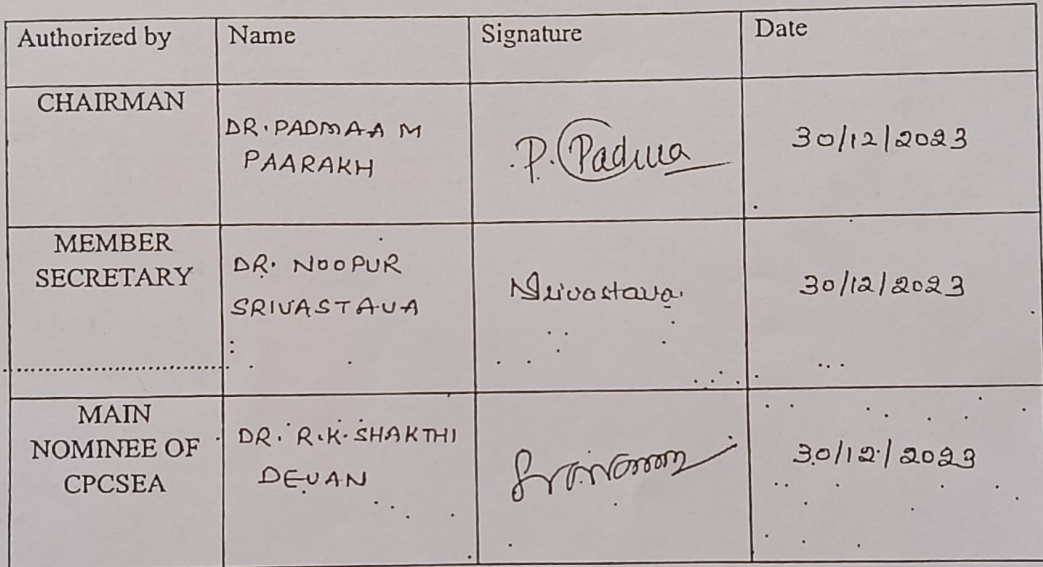 Authorized by Name Signature Date
CHAIRMAN
DR. PADMAA M
PAARAKH
P. Padma
30/12/2023
MEMBER
SECRETARY
DR. NOOPUR
SRIVASTAVA
NSrivastava.
30/12/2023
MAIN
NOMINEE OF
CPCSEA
DR. R.K. SHAKTHI
DEVAN
30/12/2023